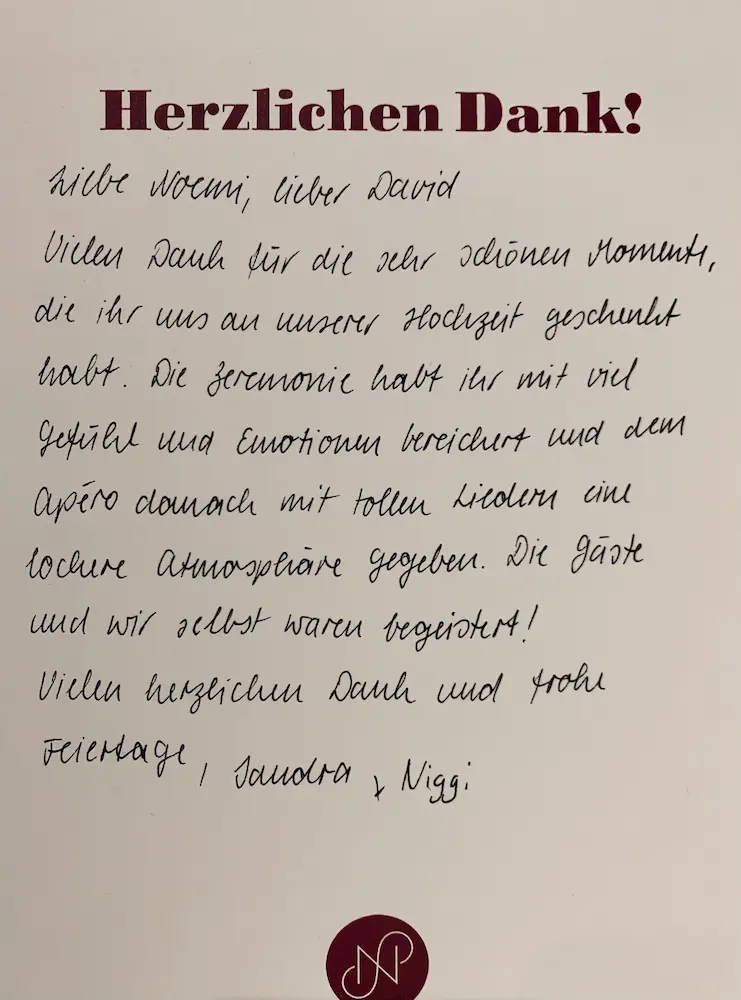 Herzlichen Dank!
Liebe Noemi, lieber David
Vielen Dank für die sehr schönen Momente,
die ihr uns an unserer Hochzeit geschenkt
habt. Die Zeremonie habt ihr mit viel
Gefühl und Emotionen bereichert und dem
Apéro danach mit tollen Liedern eine
lockere Atmosphäre gegeben. Die Gäste
und wir selbst waren begeistert!
Vielen herzlichen Dank und frohe
Feiertage, Sandra + Niggi